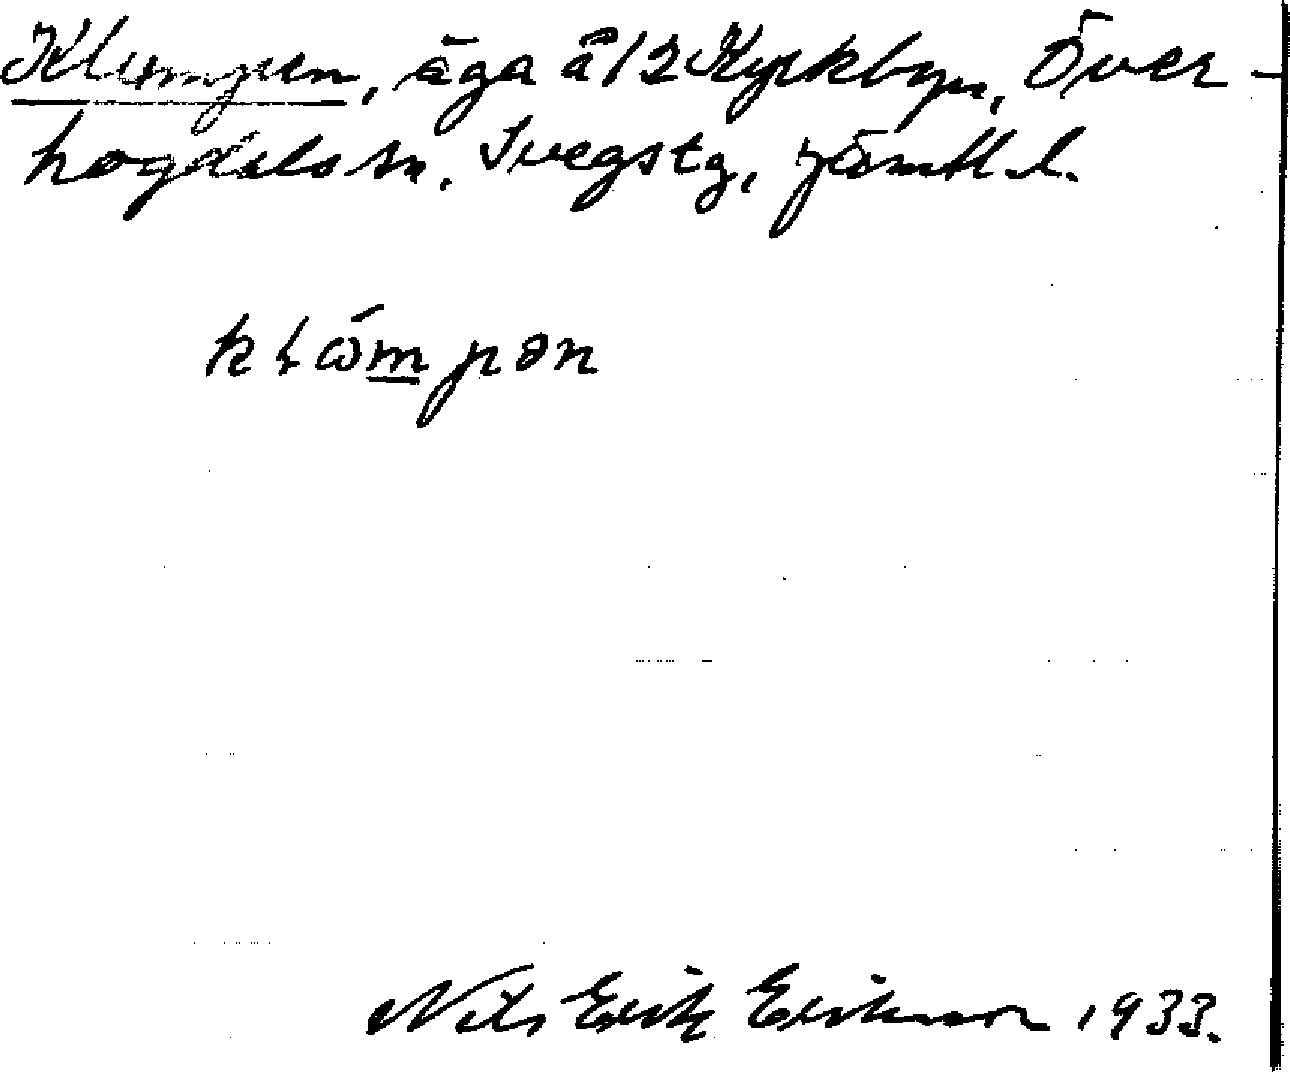 Klumpen, äga å 12 Kyrkbyn, Över-
hogdals sn. Svegs tg, Jämtl. l.
kłώmpən
Nils Erik Erikson 1933.